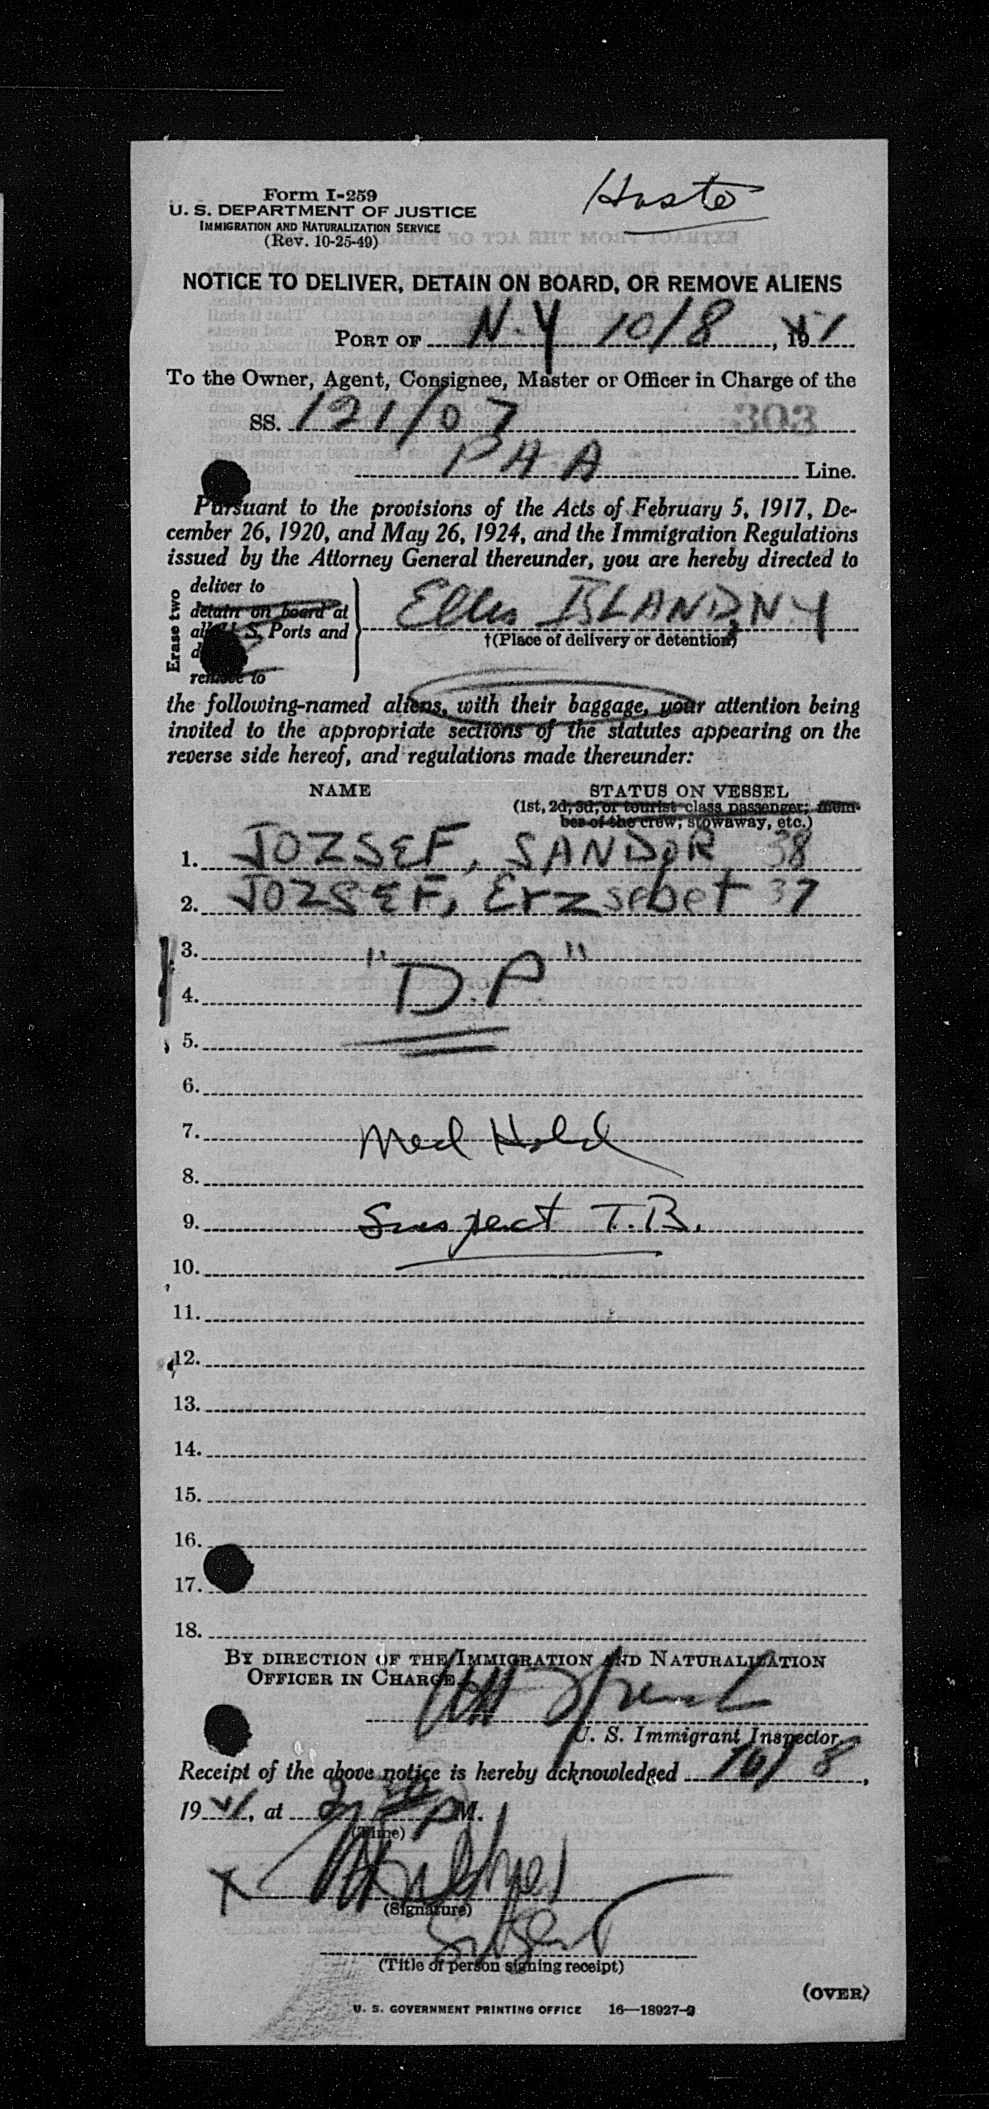 Hosto
Form I-259
U. S. DEPARTMENT OF JUSTICE
IMMIGRATION AND NATURALIZATION SERVICE
(Rev. 10-25-49)
NOTICE TO DELIVER, DETAIN ON BOARD, OR REMOVE ALIENS
PORT OF N.Y 10/8, 1951
To the Owner, Agent, Consignee, Master or Officer in Charge of the
SS. 121/07
PAA Line.
Pursuant to the provisions of the Acts of February 5, 1917, De-
cember 26, 1920, and May 26, 1924, and the Immigration Regulations
issued by the Attorney General thereunder, you are hereby directed to
Erase two
deliver to
detain on board at
all U. S. Ports and
remove to
Ellis ISLAND, N.Y
†(Place of delivery or detention)
the following-named aliens, with their baggage, your attention being
invited to the appropriate sections of the statutes appearing on the
reverse side hereof, and regulations made thereunder:
NAME STATUS ON VESSEL
(1st, 2d, 3d, or tourist class passenger; mem-
ber of the crew; stowaway, etc.)
1. JOZSEF, SANDOR 38
2. JOZSEF, Erzsebet 37
3.
4. "D.P"
5.
6.
7. Med Hold
8.
9. Suspect T.B.
10.
11.
12.
13.
14.
15.
16.
17.
18.
BY DIRECTION OF THE IMMIGRATION AND NATURALIZATION
OFFICER IN CHARGE
U. S. Immigrant Inspector.
Receipt of the above notice is hereby acknowledged 10/8,
1951, at PM.
(Time)
X
(Signature)
(Title of person signing receipt)
(OVER)
U. S. GOVERNMENT PRINTING OFFICE 16—18927-2